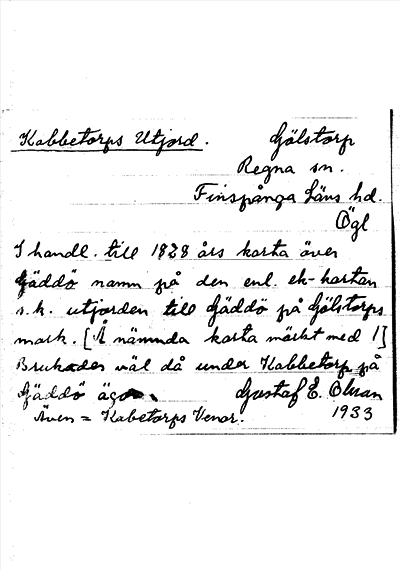 Kabbetorps Utjord.
Gölstorp
Regna sn.
Finspånga Läns hd.
Ögl
I handl. till 1828 års karta över
Gäddö namn på den enl. ek-kartan
s.k. utjorden till Gäddö på Gölstorps
mark. [Å nämnda karta märkt med 1]
Brukades väl då under Kabbetorp på
Gäddö ägor.
Gustaf E. Olsson
Även = Kabetorps Venor.
1933